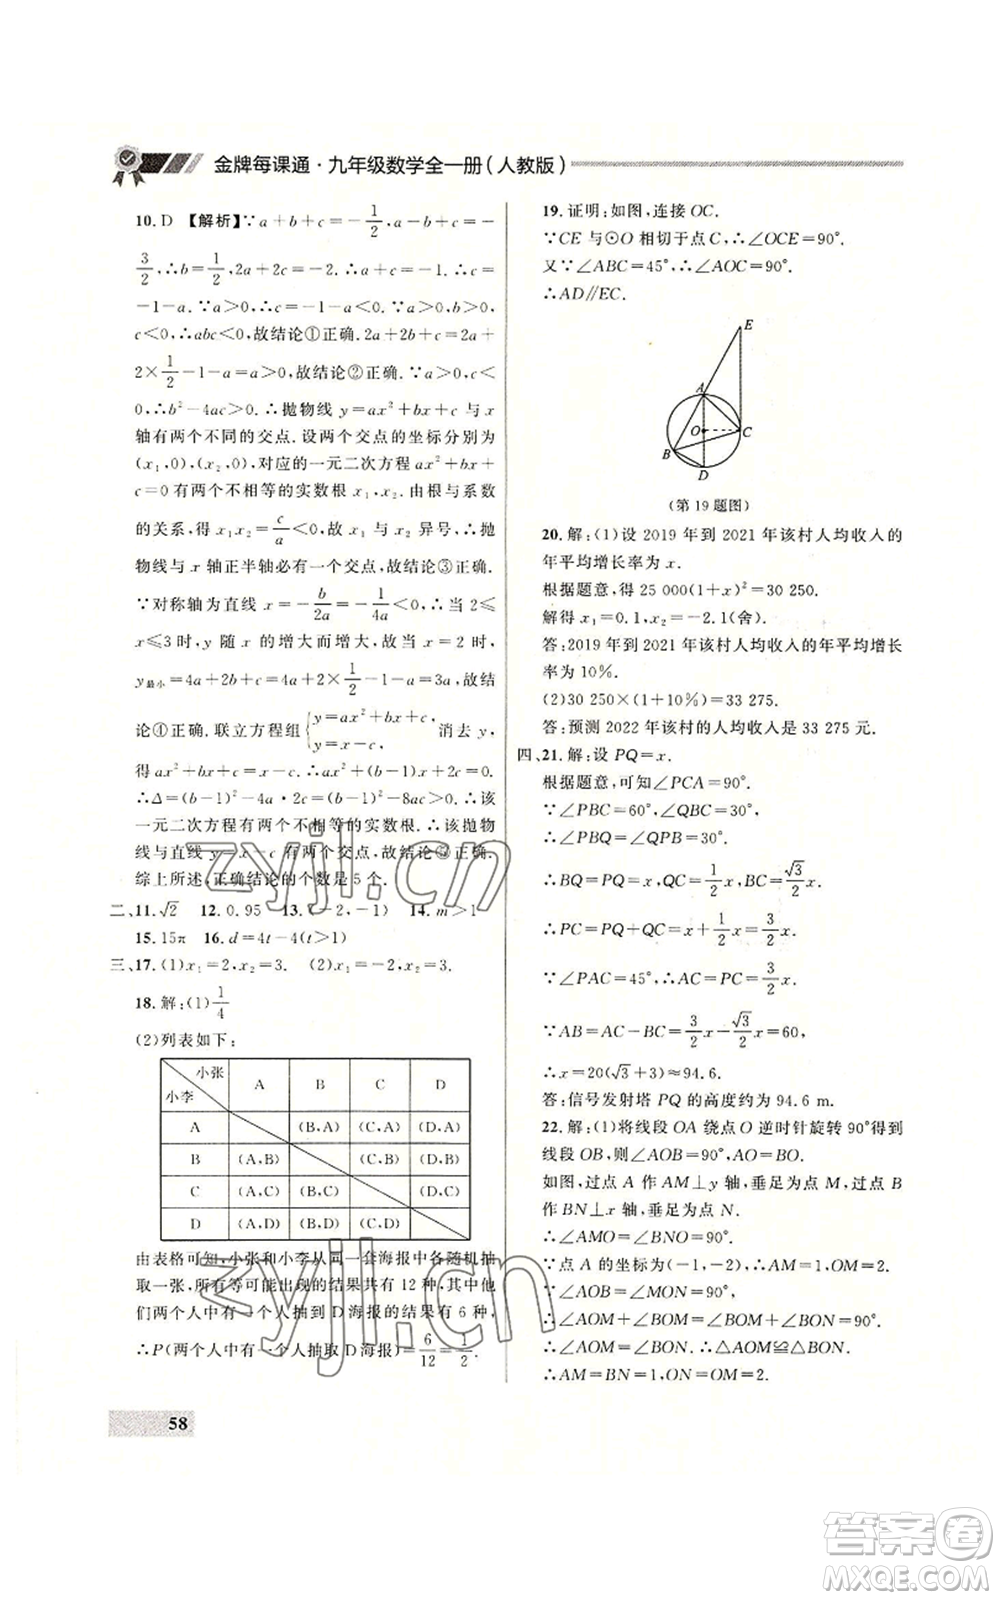 金牌每课通·九年级数学全一册(人教版)
10. D 【解析】∵a+b+c=-1/2,a-b+c=-
3/2,∴b=1/2,2a+2c=-2.∴a+c=-1.∴c=
-1-a.∵a>0,∴c=-1-a<0.∵a>0,b>0,
c<0,∴abc<0,故结论①正确.2a+2b+c=2a+
2×1/2-1-a=a>0,故结论②正确.∵a>0,c<
0,∴b²-4ac>0.∴抛物线 y=ax²+bx+c 与 x
轴有两个不同的交点.设两个交点的坐标分别为
(x₁,0),(x₂,0),对应的一元二次方程 ax²+bx+
c=0 有两个不相等的实数根 x₁,x₂,由根与系数
的关系,得 x₁x₂=c/a<0,故 x₁与 x₂ 异号,∴抛
物线与 x 轴正半轴必有一个交点.故结论③正确.
∵对称轴为直线 x=-b/2a=-1/4a<0,∴当 2≤
x≤3 时,y 随 x 的增大而增大,故当 x=2 时,
y最小=4a+2b+c=4a+2×1/2-1-a=3a,故结
论④正确.联立方程组{y=ax²+bx+c, y=x-c, 消去 y,
得 ax²+bx+c=x-c.∴ax²+(b-1)x+2c=0.
∴Δ=(b-1)²-4a·2c=(b-1)²-8ac>0.∴该
一元二次方程有两个不相等的实数根.∴该抛物
线与直线 y=x-c 有两个交点,故结论⑤正确.
综上所述,正确结论的个数是 5 个.
二、11. √2 12. 0.95 13. (-2,-1) 14. m>1
15. 15π 16. d=4t-4(t>1)
三、17. (1)x₁=2,x₂=3. (2)x₁=-2,x₂=3.
18. 解:(1)1/4
(2)列表如下:
小张
小李
A B C D
A (B,A) (C,A) (D,A)
B (A,B) (C,B) (D,B)
C (A,C) (B,C) (D,C)
D (A,D) (B,D) (C,D)
由表格可知,小张和小李从同一套海报中各随机抽
取一张,所有等可能出现的结果共有 12 种,其中他
们两个人中有一个人抽到 D 海报的结果有 6 种,
∴P(两个人中有一个人抽取 D 海报)=6/12=1/2.
58
19. 证明:如图,连接 OC.
∵CE 与⊙O 相切于点 C,∴∠OCE=90°.
又∵∠ABC=45°,∴∠AOC=90°.
∴AD∥EC.
E
A
O
C
B
D
(第 19 题图)
20. 解:(1)设 2019 年到 2021 年该村人均收入的
年平均增长率为 x.
根据题意,得 25 000(1+x)²=30 250.
解得 x₁=0.1,x₂=-2.1(舍).
答:2019 年到 2021 年该村人均收入的年平均增长
率为 10%.
(2)30 250×(1+10%)=33 275.
答:预测 2022 年该村的人均收入是 33 275 元.
四、21. 解:设 PQ=x.
根据题意,可知∠PCA=90°.
∵∠PBC=60°,∠QBC=30°,
∴∠PBQ=∠QPB=30°.
∴BQ=PQ=x,QC=1/2x,BC=√3/2x.
∴PC=PQ+QC=x+1/2x=3/2x.
∵∠PAC=45°,∴AC=PC=3/2x.
∵AB=AC-BC=3/2x-√3/2x=60,
∴x=20(√3+3)≈94.6.
答:信号发射塔 PQ 的高度约为 94.6 m.
22. 解:(1)将线段 OA 绕点 O 逆时针旋转 90°得到
线段 OB,则∠AOB=90°,AO=BO.
如图,过点 A 作 AM⊥y 轴,垂足为点 M,过点 B
作 BN⊥x 轴,垂足为点 N.
∴∠AMO=∠BNO=90°.
∵点 A 的坐标为(-1,-2),∴AM=1,OM=2.
∵∠AOB=∠MON=90°,
∴∠AOM+∠BOM=∠BOM+∠BON=90°.
∴∠AOM=∠BON.∴△AOM≌△BON.
∴AM=BN=1,ON=OM=2.
zyjl.cn
zyjl.cn
答案卷
MXQE.COM